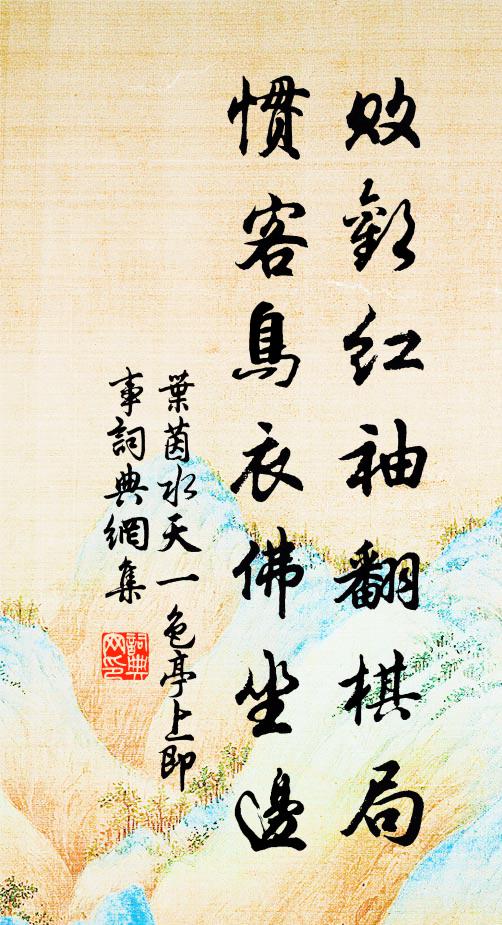 敗歡紅袖翻棋局
慣客烏衣佛坐邊
葉茵水天一色亭上即
事詞典網集
詞典网印